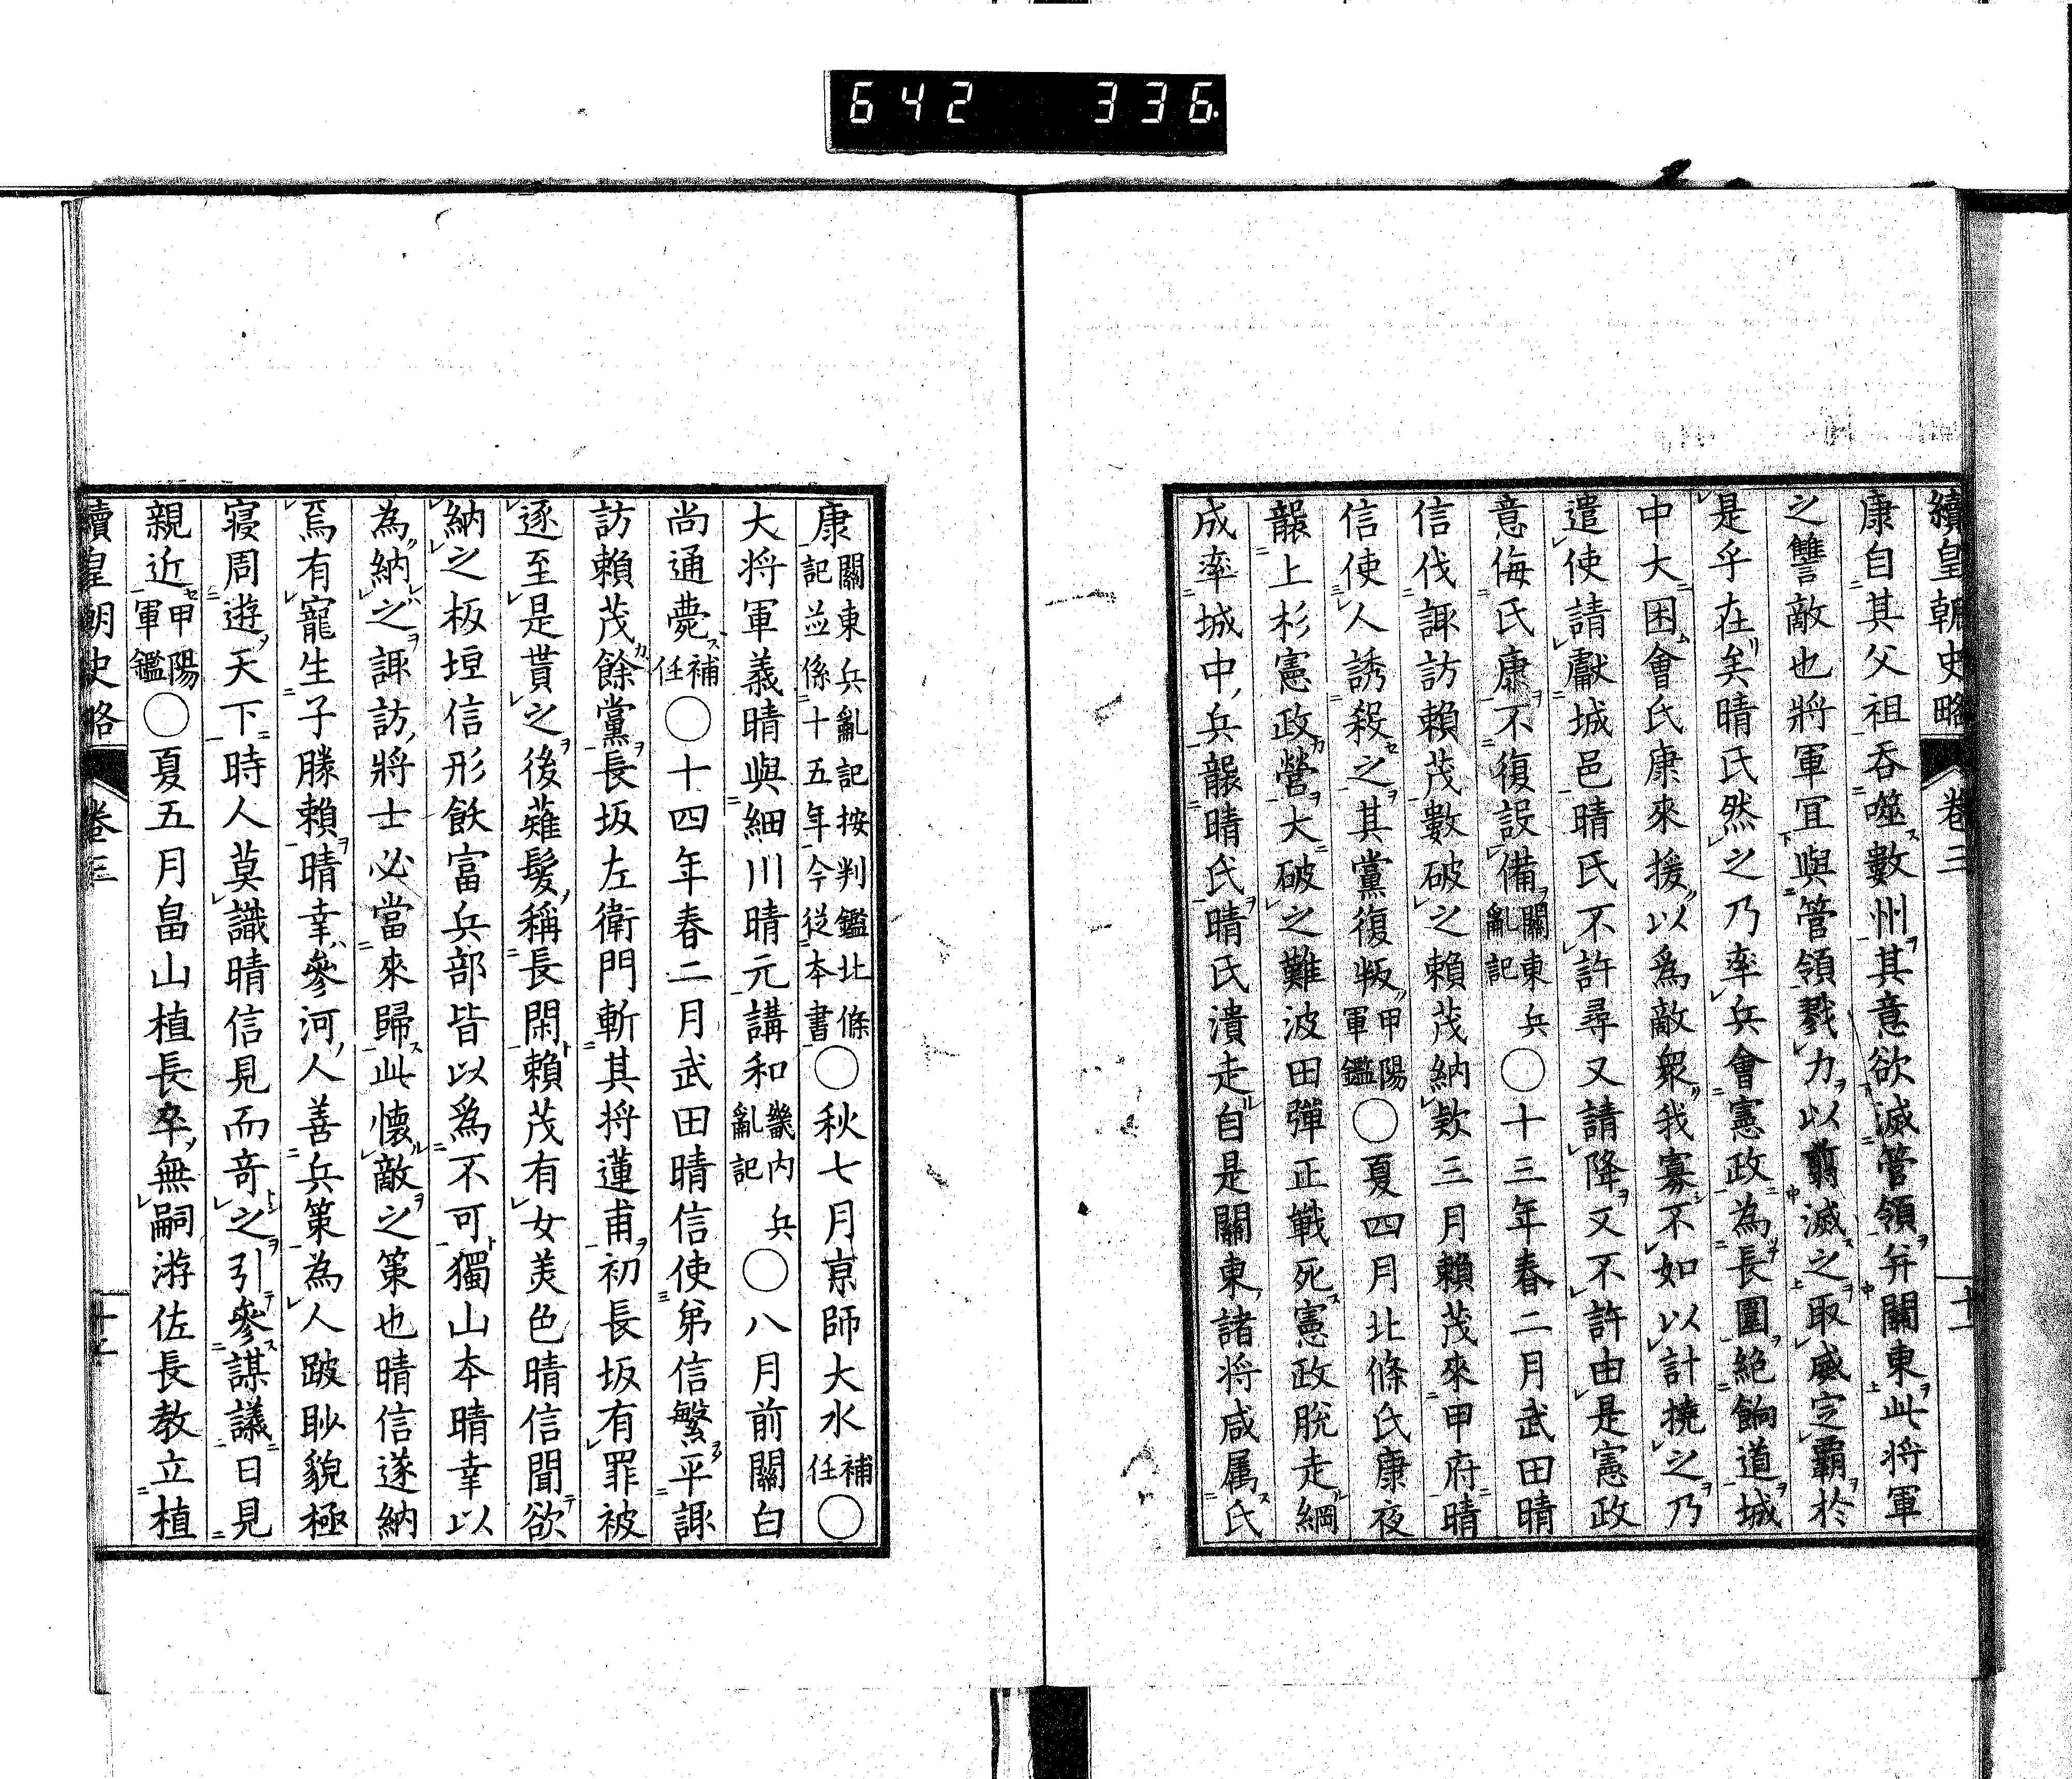 642 336
續皇朝史略 卷三 十一
康自其父祖吞噬數州其意欲滅管領并關東此将軍
之讐敵也將軍宜與管領戮力以翦滅之取威定霸於
是乎在矣晴氏然之乃率兵會憲政為長圍絶餉道城
中大困會氏康來援以爲敵衆我寡不如以計撓之乃
遣使請獻城邑晴氏不許尋又請降又不許由是憲政
意侮氏康不復設備關東兵亂記〇十三年春二月武田晴
信伐諏訪賴茂數破之賴茂納欵三月賴茂來甲府晴
信使人誘殺之其黨復叛甲陽軍鑑〇夏四月北條氏康夜
襲上杉憲政營大破之難波田彈正戰死憲政脫走綱
成率城中兵襲晴氏晴氏潰走自是關東諸将咸属氏
康關東兵亂記按判鑑北條記並係十五年今從本書〇秋七月京師大水補任〇
大将軍義晴與細川晴元講和畿内兵亂記〇八月前關白
尚通薨補任〇十四年春二月武田晴信使弟信繁平諏
訪賴茂餘黨長坂左衛門斬其将蓮甫初長坂有罪被
逐至是貰之後薙髮稱長閑賴茂有女美色晴信聞欲
納之板垣信形飫富兵部皆以爲不可獨山本晴幸以
為納之諏訪將士必當來歸此懷敵之策也晴信遂納
焉有寵生子勝賴晴幸參河人善兵策為人跛眇貌極
寝周遊天下時人莫識晴信見而奇之引參謀議日見
親近甲陽軍鑑〇夏五月畠山植長卒無嗣游佐長教立植
續皇朝史略 卷三